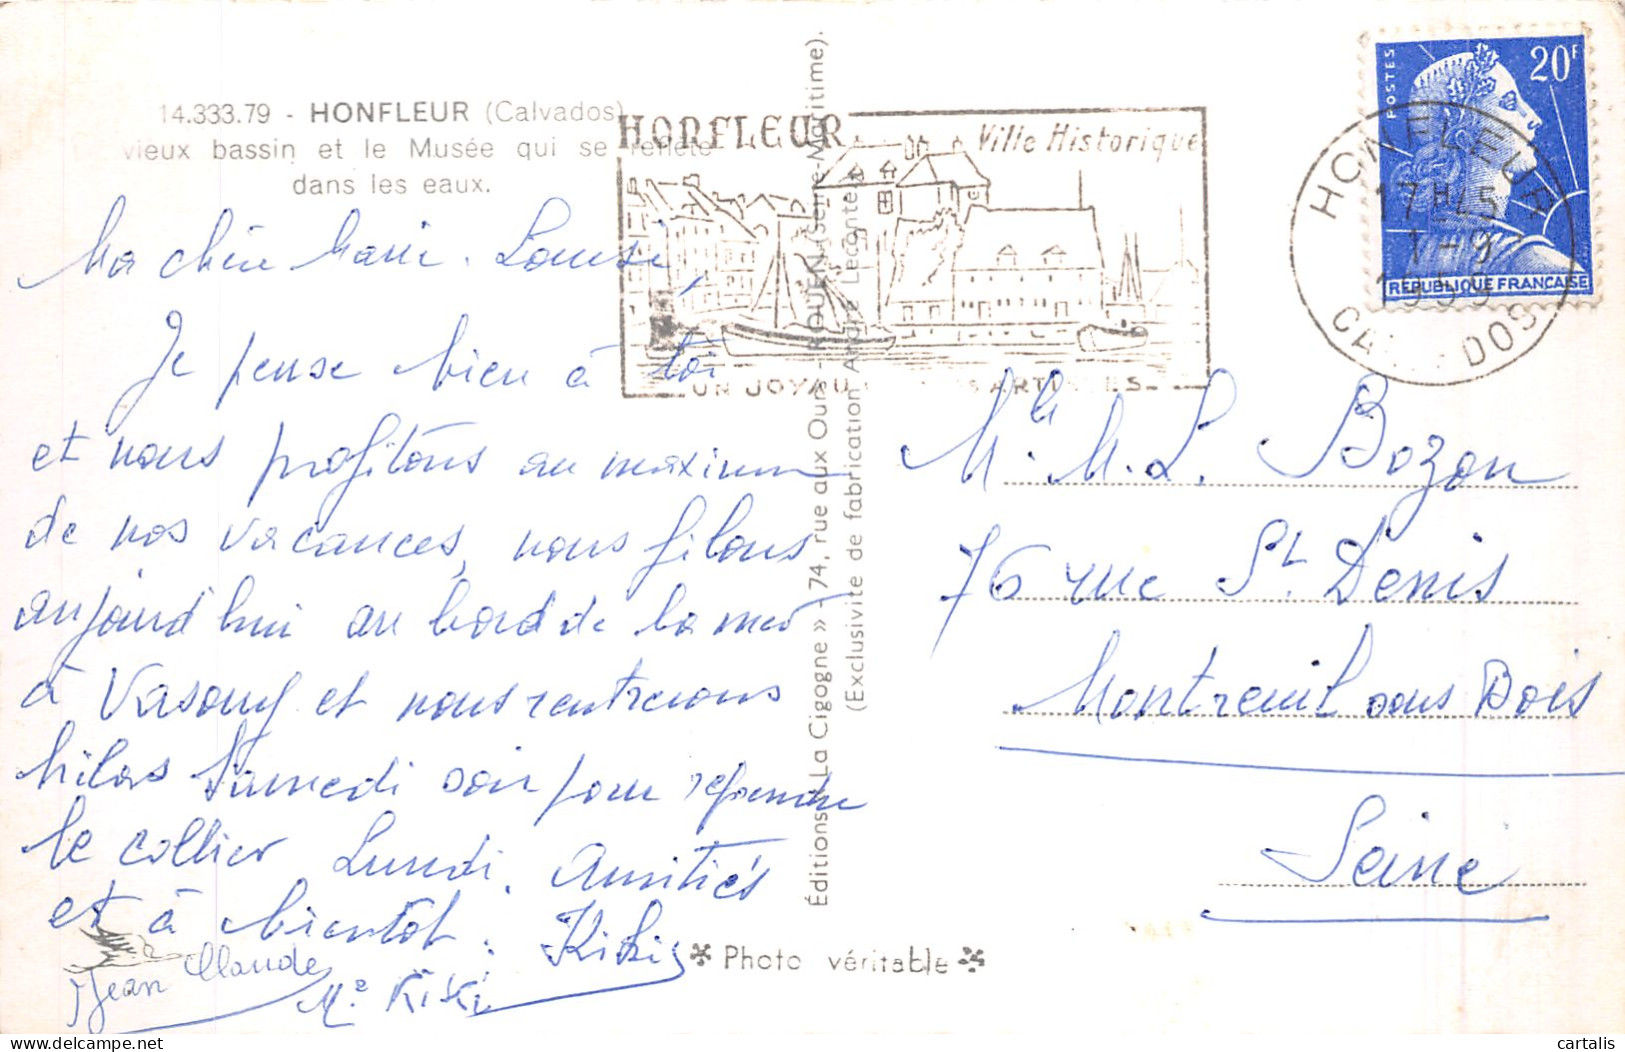 14.333.79 - HONFLEUR (Calvados)
vieux bassin et le Musée qui se reflète
dans les eaux.
Ma chère Marie-Louise,
Je pense bien à toi
et nous profitons au maximum
de nos vacances, nous filons
aujourd'hui au bord de la mer
à Vasouy et nous rentrerons
hélas Samedi soir pour reprendre
le collier Lundi. Amitiés
et à bientôt. Kiki
Jean Claude
Mr KiKi
Éditions « La Cigogne » - 74, rue aux Ours - ROUEN (Seine-Maritime).
(Exclusivité de fabrication André Leconte)
* Photo véritable *
HONFLEUR
Ville Historique
UN JOYAU ARTISTES
POSTES
20F
REPUBLIQUE FRANÇAISE
HONFLEUR
17H45
1-9
1959
CALVADOS
Mlle M.L. Bozon
76 rue St Denis
Montreuil sous Bois
Seine
cartalis